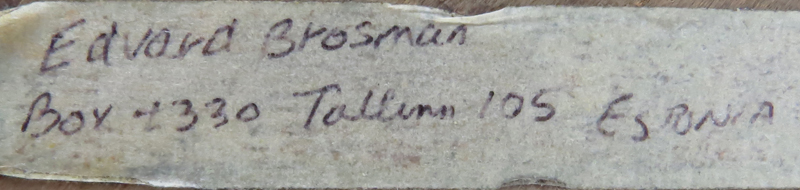 Edvard Brosman
Box 1330 Tallinn 105 ESTONIA